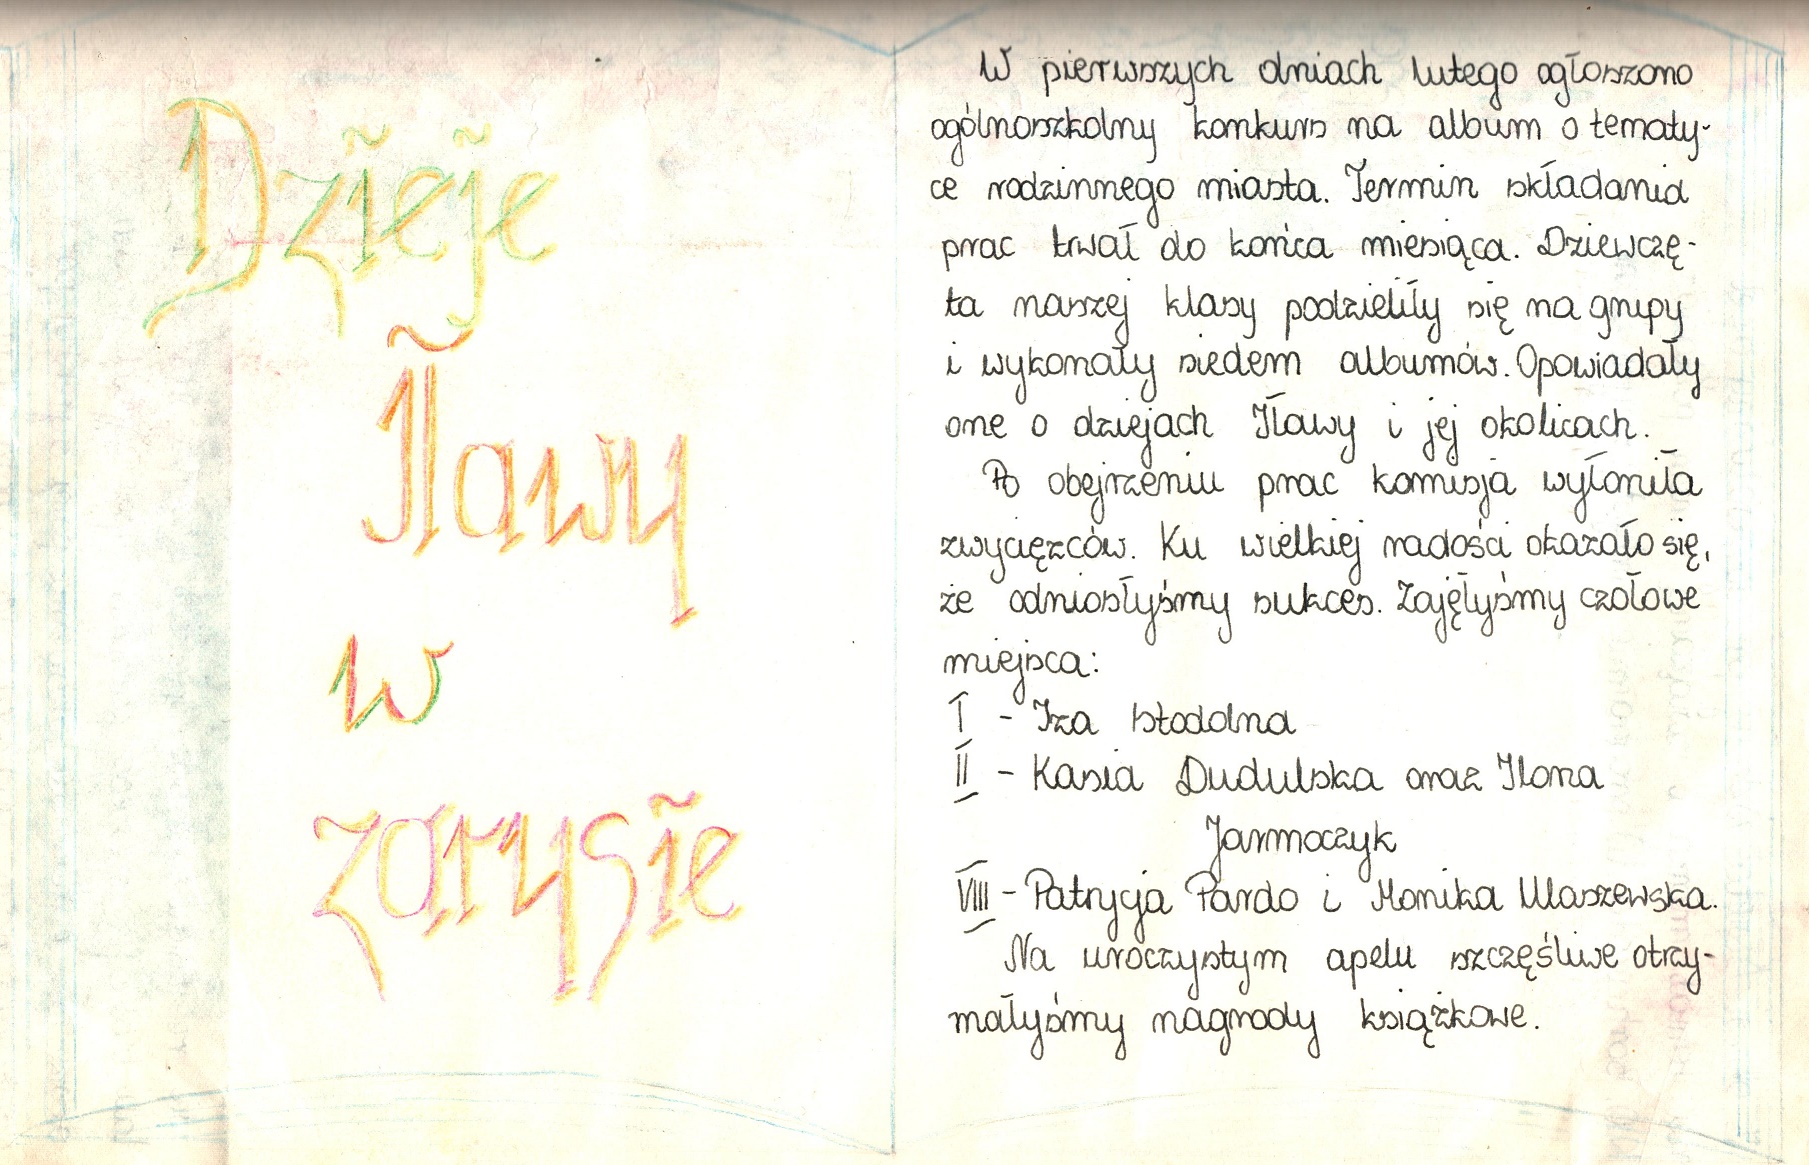 Dzieje
Iławy
w
zarysie
W pierwszych dniach lutego ogłoszono
ogólnoszkolny konkurs na album o tematy-
ce rodzinnego miasta. Termin składania
prac trwał do końca miesiąca. Dziewczę-
ta naszej klasy podzieliły się na grupy
i wykonały siedem albumów. Opowiadały
one o dziejach Iławy i jej okolicach.
Po obejrzeniu prac komisja wyłoniła
zwycięzców. Ku wielkiej radości okazało się,
że odniosłyśmy sukces. Zajęłyśmy czołowe
miejsca:
I - Iza Stodolna
II - Kasia Dudulska oraz Ilona
Jarmoczyk
VIII - Patrycja Pardo i Monika Ulaszewska.
Na uroczystym apelu szczęśliwe otrzy-
małyśmy nagrody książkowe.